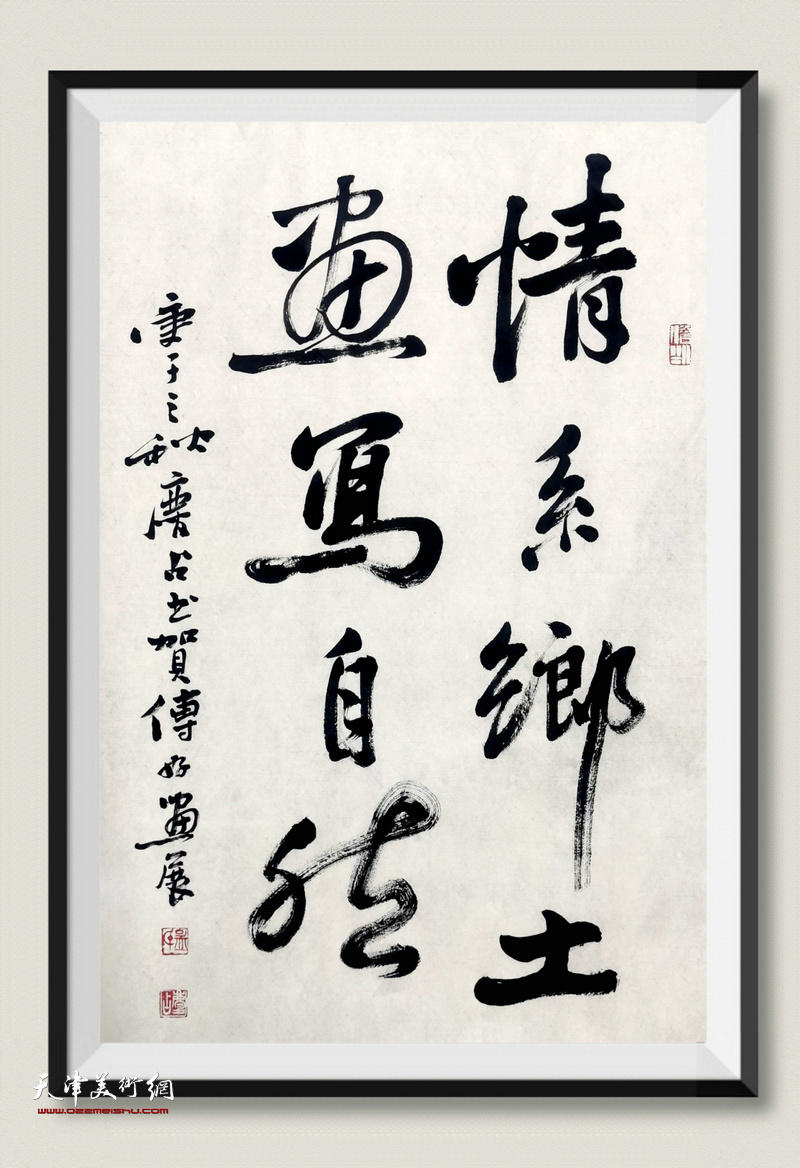 情系鄉土
畫寫自然
庚子之秋唐占书賀傳好畫展
天津美術網
www.022meishu.com